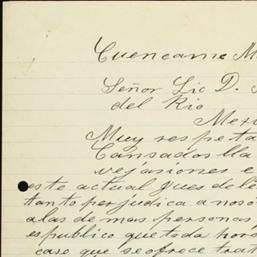 Cuencame M
Señor Lic D.
del Rio
Mexi
Muy respeta
Cansados lla
vejasiones e
este actual Jues de le
tanto perjudica a nosó
alas de mas personas
es publico que toda hora
caso que se ofrece trat